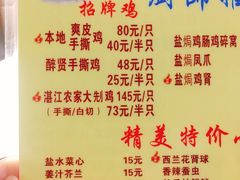 招牌鸡
爽皮鸡 80元/只
本地
手撕 40元/半只
醉贤手撕鸡 48元/只
25元/半只
湛江农家大刬鸡 145元/只
(手撕/白切) 73元/半只
盐焗鸡肠鸡碎窝
盐焗凤爪
盐焗鸡肾
精美特价
盐水菜心 15元
姜汁芥兰 15元
西兰花肾球
香辣蚕虫